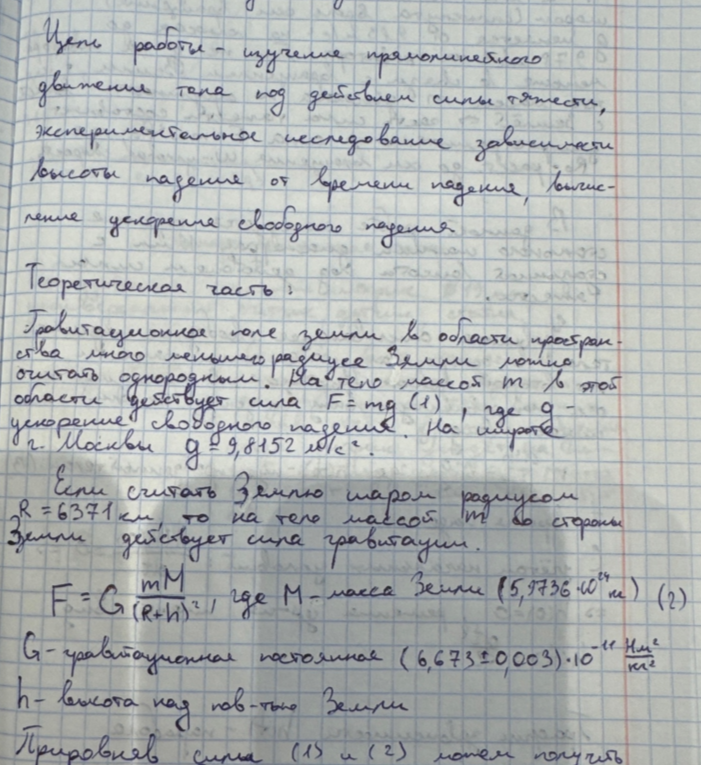 Цель работы - изучение прямолинейного
движения тела под действием силы тяжести,
экспериментальное исследование зависимости
высоты падения от времени падения, вычис-
ление ускорения свободного падения.
Теоретическая часть:
Гравитационное поле земли в области простран-
ства много меньшего радиуса Земли можно
считать однородным. На тело массой m в этой
области действует сила F=mg (1), где g -
ускорение свободного падения. На широте
г. Москвы g=9,8152 м/с².
Если считать Землю шаром радиусом
R=6371 км, то на тело массой m со стороны
Земли действует сила гравитации.
F=G mM/(R+h)², где M-масса Земли (5,9736·10²⁴ кг) (2)
G-гравитационная постоянная (6,673±0,003)·10⁻¹¹ Нм²/кг²
h-высота над пов-тью Земли
Приравняв силы (1) и (2) можем получить